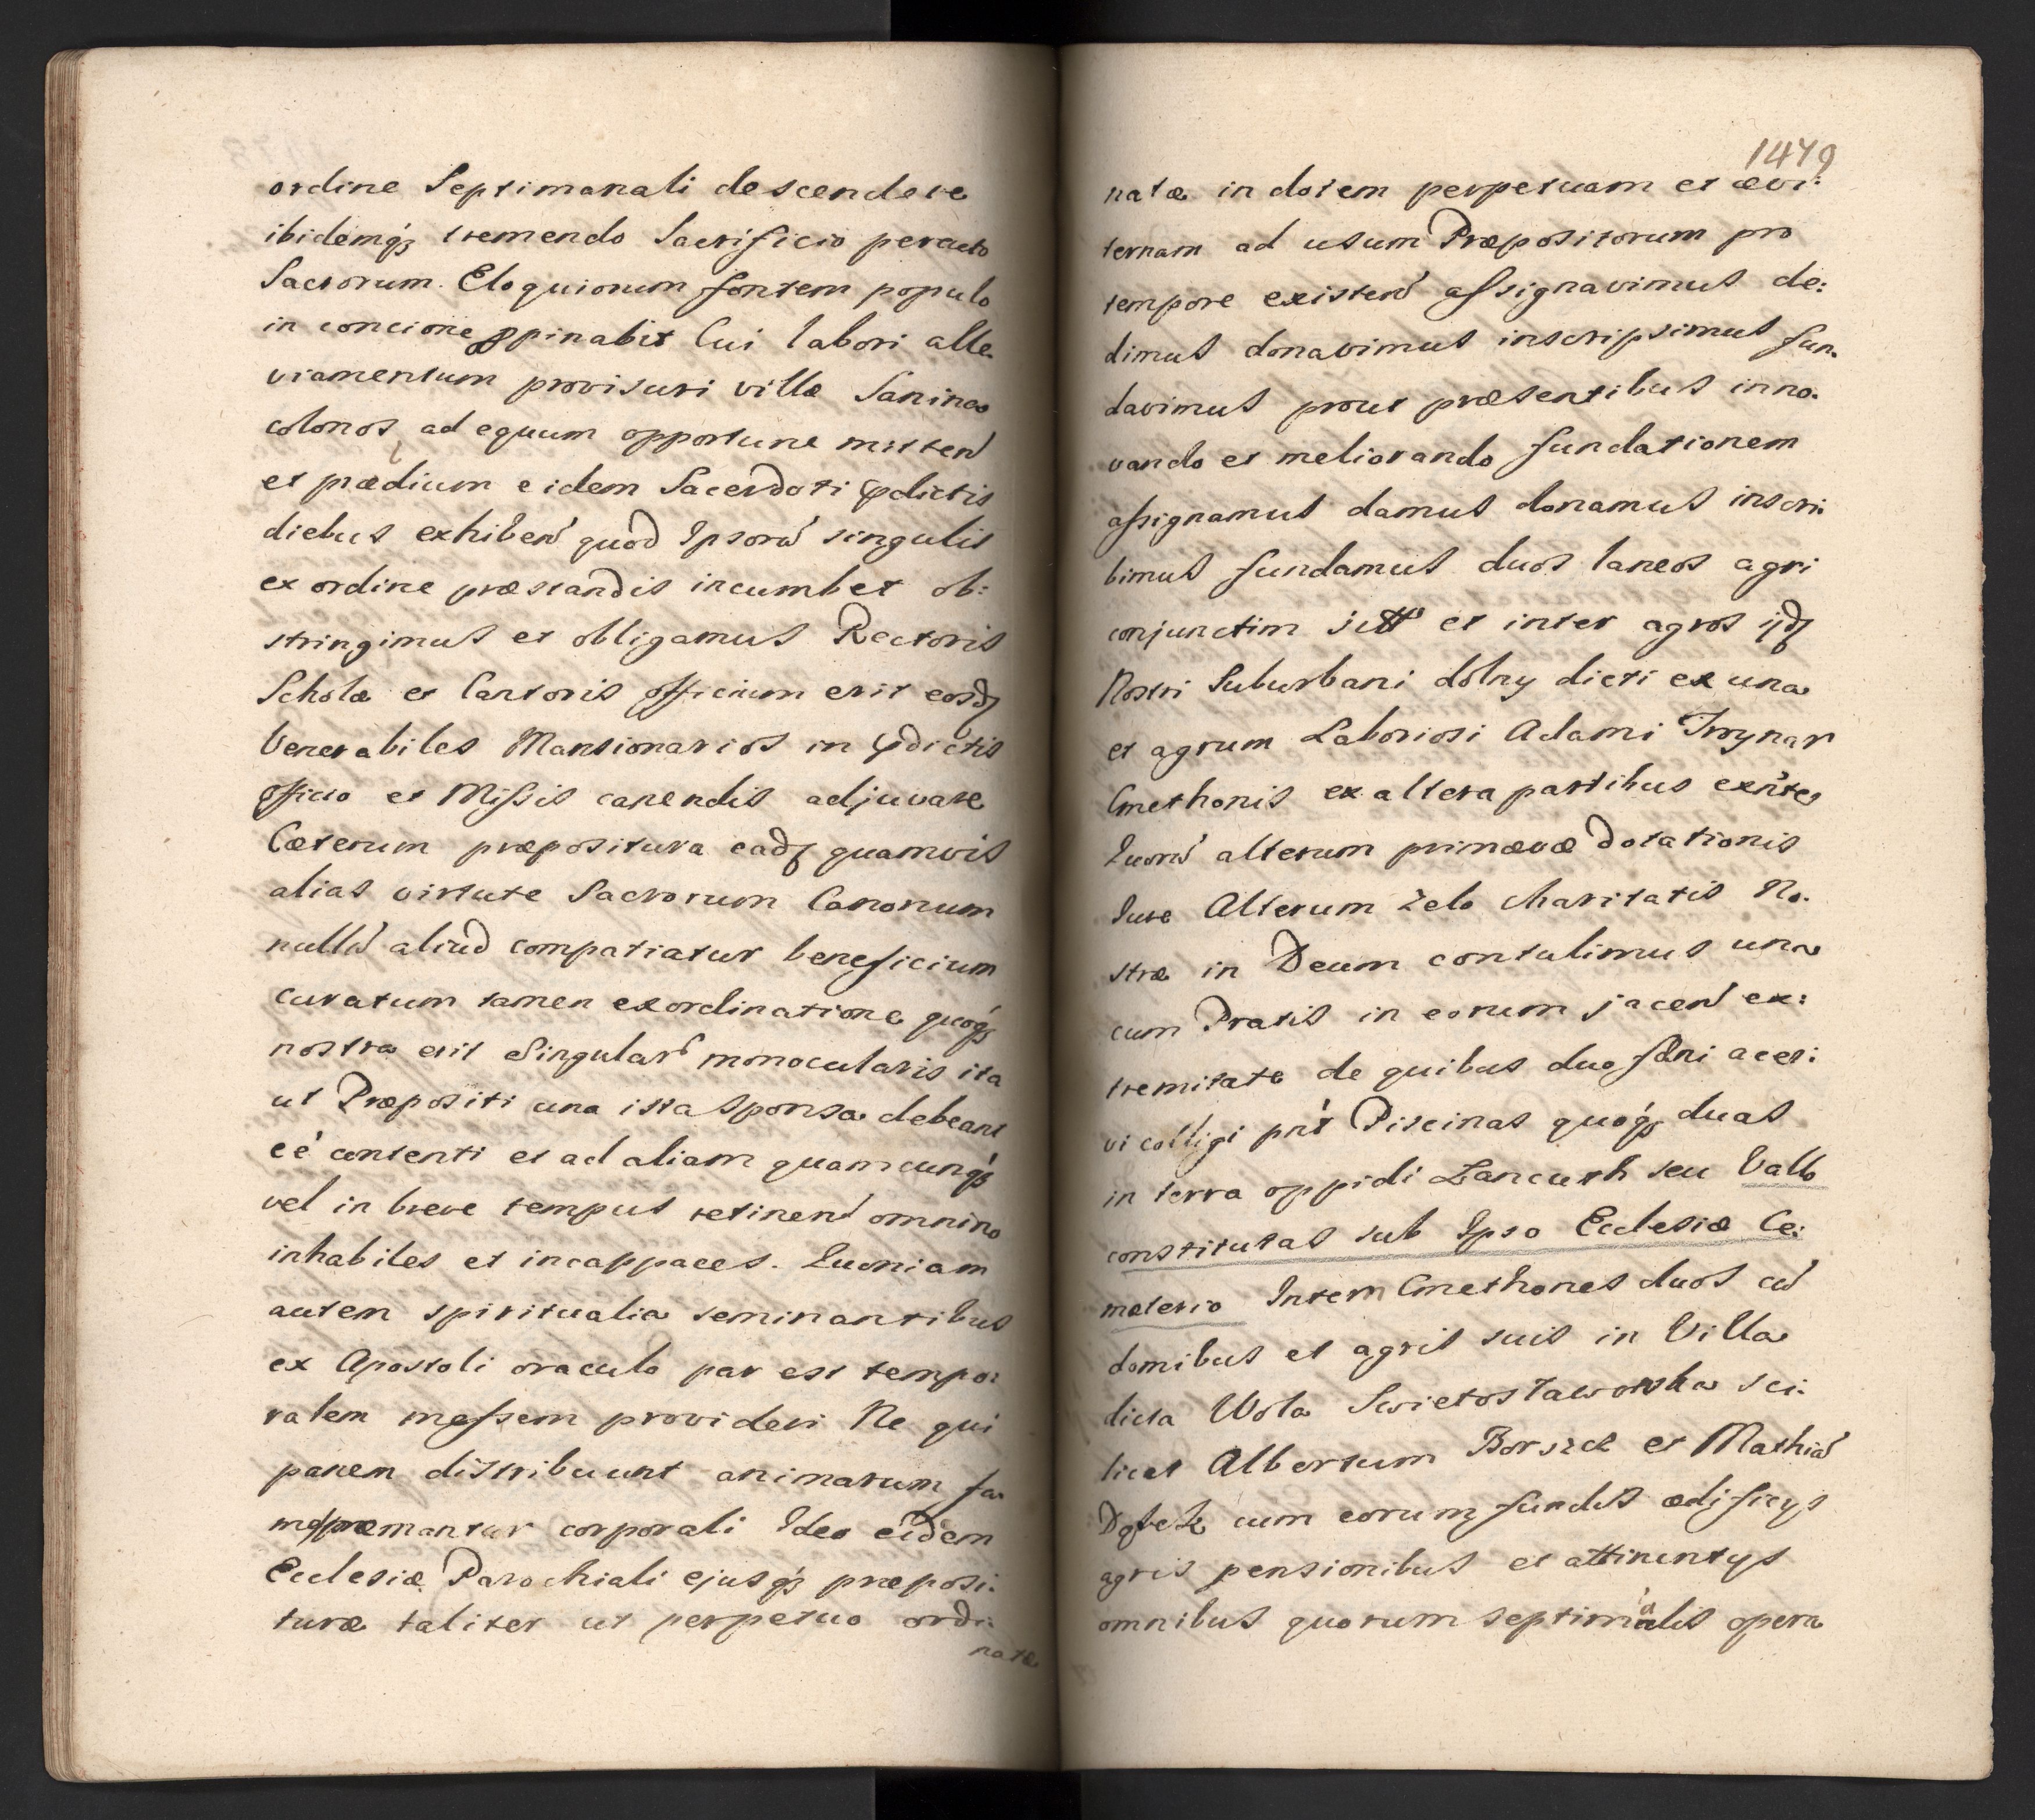 ordine Septimanali descendere
ibidemq́ꝫ tremendo Sacrificio peracto
Sacrorum. Eloquiorum fontem populo
in concione ꝓpinabit Cui labori alle-
viamentum provisuri villæ Sanina
colonos ad equum opportune mitten̄
et prædium eidem Sacerdoti p̄dictis
diebus exhiben̄ quod Ipsorū singulis
ex ordine præstandis incumbet ob:
stringimus et obligamus Rectoris
Scholæ et Cantoris officium erit eosdꝫ
Venerabiles Mansionarios in p̄dictis
officio et Missis canendis adjuvare
Cæterum præpositura eadꝫ quamvis
alias virtute Sacrorum Canonum
nullū aliud compatiatur beneficium
curatum tamen exordinatione quoq́ꝫ
nostra erit Singular̄ monocularis ita
ut Præpositi una ista sponsa debeant
eē contenti et ad aliam quamcunq́ꝫ
vel in breve tempus retinen̄ omnino
inhabiles et incappaces. Quoniam
autem spiritualia seminantibus
ex Apostoli oraculo par est tempo:
ralem messem provideri Ne qui
panem distribuunt animarum fa-
me præmantur corporali Ideo eidem
Ecclesiæ Parochiali ejusq́ꝫ præposi:
turæ taliter ut perpetuo ordi:
natæ
1479
natæ in dotem perpetuam et ævi:
ternam ad usum Præpositorum pro
tempore existen̄ assignavimus de:
dimus donavimus inscripsimus fun-
davimus prout præsentibus inno-
vando et meliorando fundationem
assignamus damus donamus inscri-
bimus fundamus duos laneos agri
conjunctim et inter agros ijdꝫ
Nostri Suburbani dolny dicti ex una
et agrum Laboriosi Adami Trynar
Cmethonis ex altera partibus exn̄tes
Quorū alterum primævæ Dotationis
Jure Alterum zelo charitatis No-
stræ in Deum contulimus una
cum Pratis in eorum jacen̄ ex:
tremitate de quibus duo fæni acer:
vi colligi pn̄t Piscinas quoq́ꝫ duas
in terra oppidi Lancuth seu Vallo
constitutas sub Ipso Ecclesiæ Ce:
mæterio Intem Cmethones duos cū
domibus et agris suis in Villa
dicta Wola Swietosławowska sci:
licet Albertum Borszcz et Mathiā
cum eorum fundis ædificijs
agris pensionibus et attinentijs
omnibus quorum septimalis opera